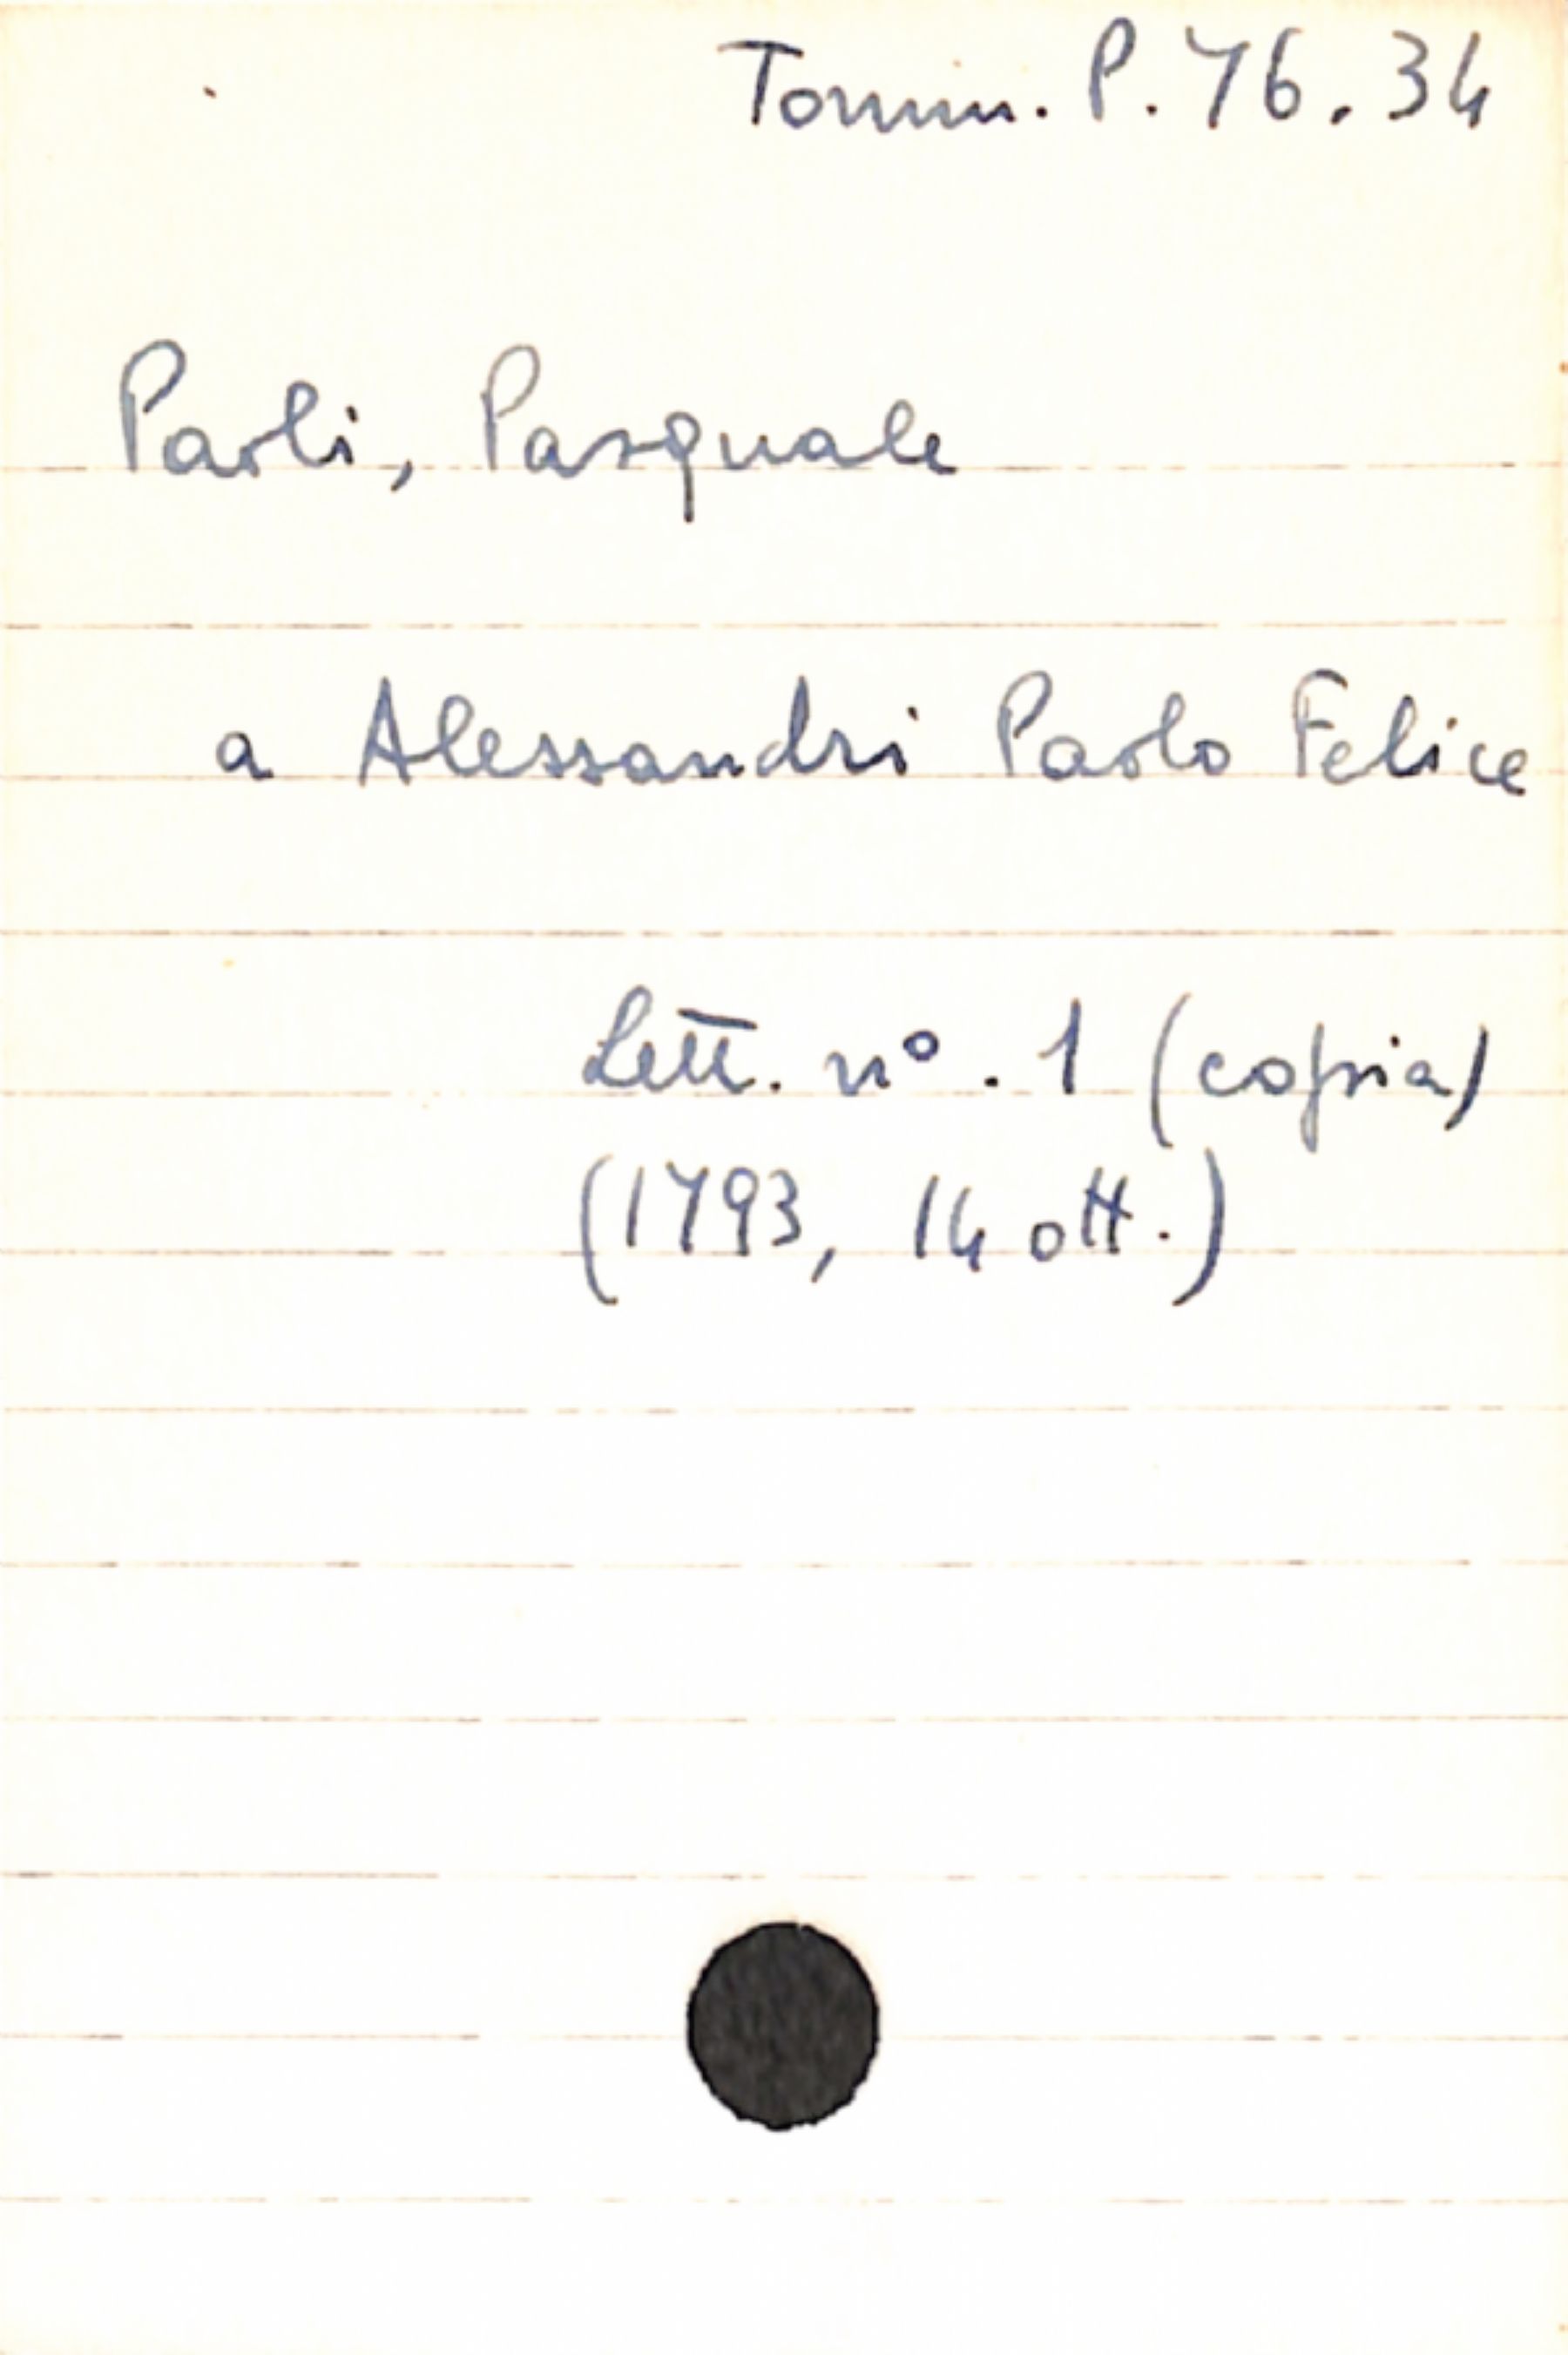 Tomm. P. 76. 34
Paoli, Pasquale
a Alessandri Paolo Felice
Lett. nº. 1 (copia)
(1793, 14 ott.)